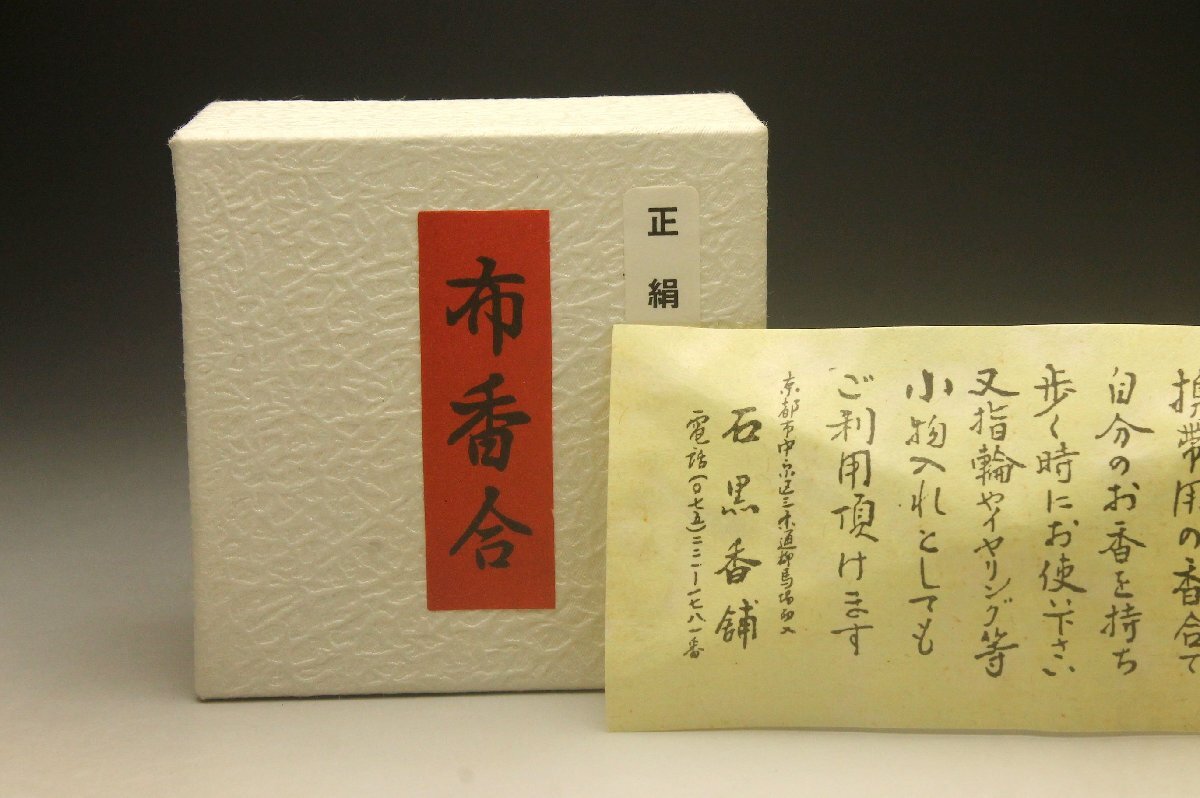 布香合
正絹
携帯用の香合で
自分のお香を持ち
歩く時にお使い下さい
又指輪やイヤリング等
小物入れとしても
ご利用頂けます
京都市中京区三条通柳馬場西入
石黒香舗
電話(〇七五)二二一―一七八一番